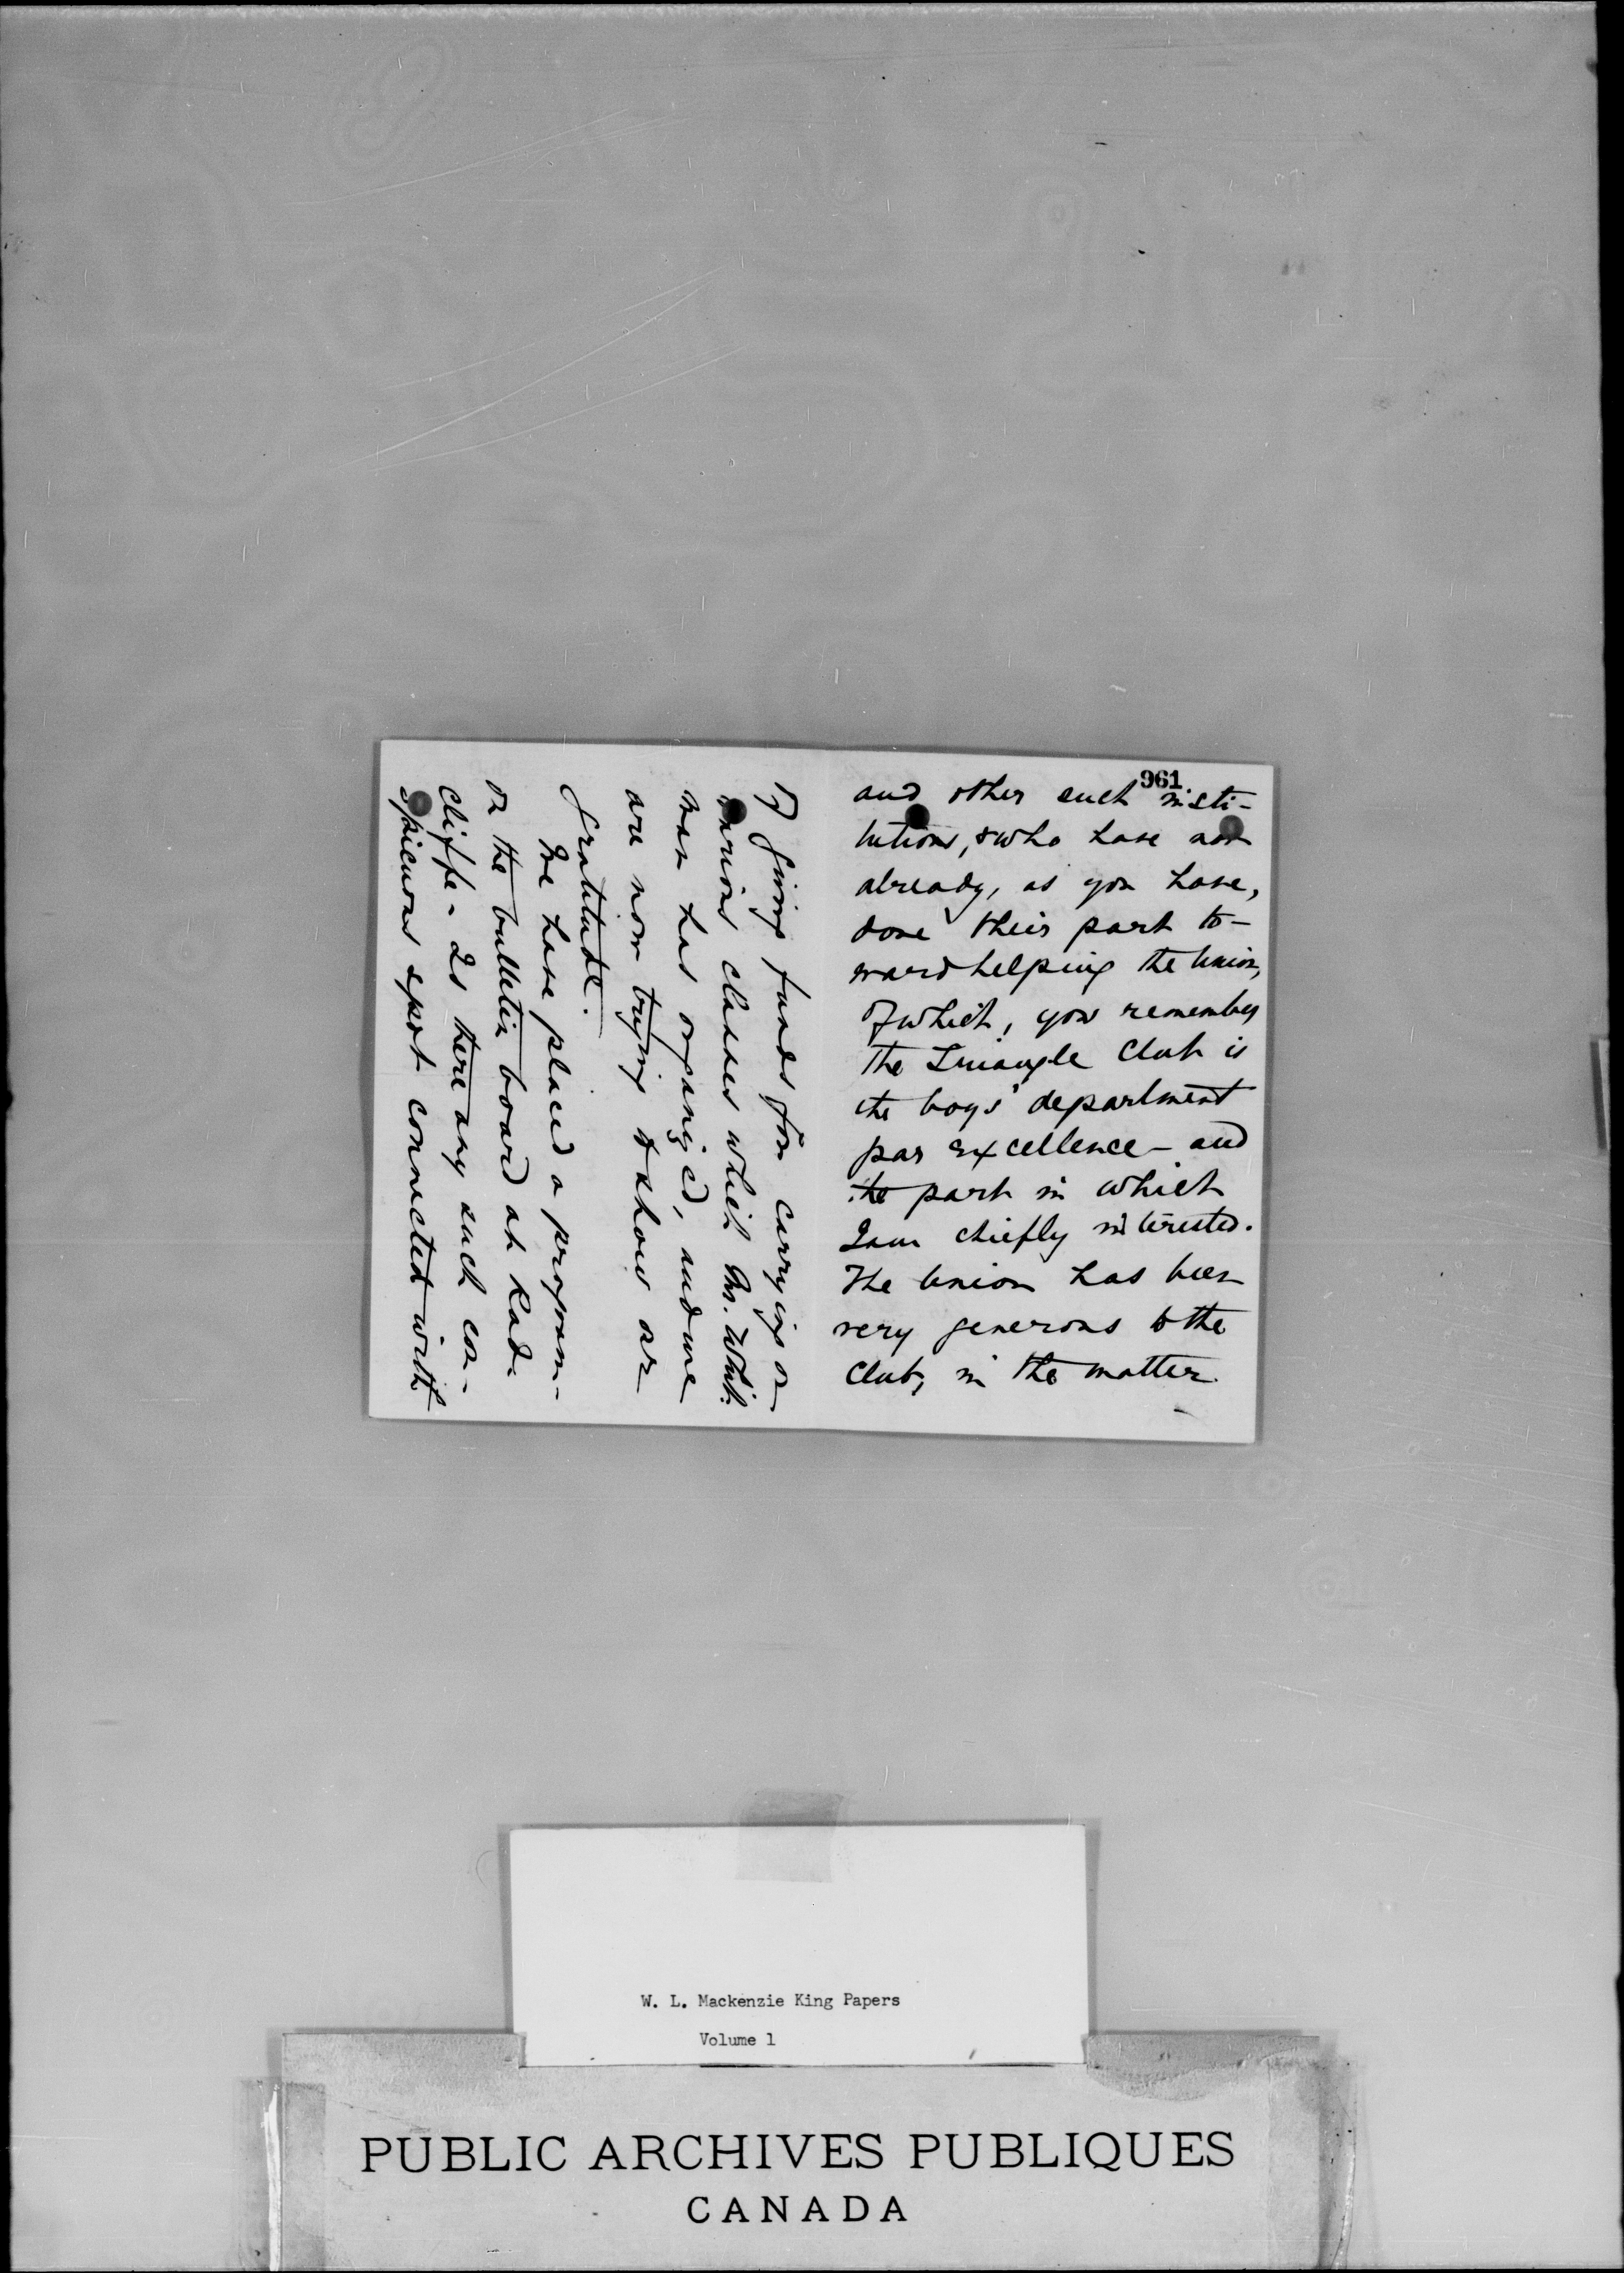 961
and other such insti-
tutions, & who have not
already, as you have,
done their part to-
ward helping the Union,
of which, you remember
the Triangle Club is
the boys' department
par excellence - and
the part in which
I am chiefly interested.
The Union has been
very generous to the
Club, in the matter
of giving funds for carrying on
various classes which Mr. Whit-
man has organized, and we
are now trying to show our
gratitude.
We have placed a program-
on the bulletin board at Rad-
cliffe - Is there any such con-
spicuous spot connected with
W. L. Mackenzie King Papers
Volume 1
PUBLIC ARCHIVES PUBLIQUES
CANADA